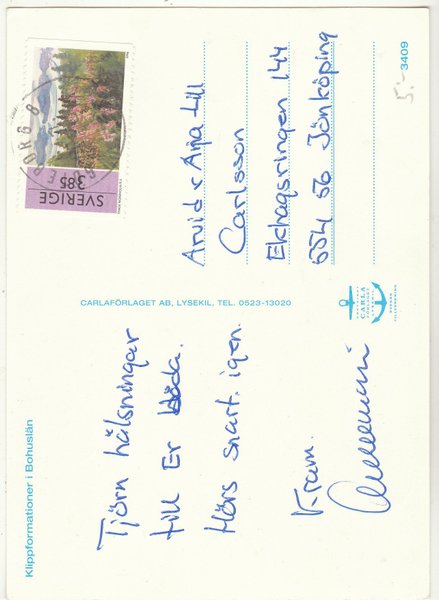 Klippformationer i Bohuslän
Tjörn hälsningar
till Er båda.
Hörs snart igen.
Kram.
CARLAFÖRLAGET AB, LYSEKIL, TEL. 0523-13020
CARLA
FÖRLAGET
SVERIGE
385
Arvid & Anna till
Carlsson
Ekhagsringen 144
554 56 Jönköping
3409
5:-